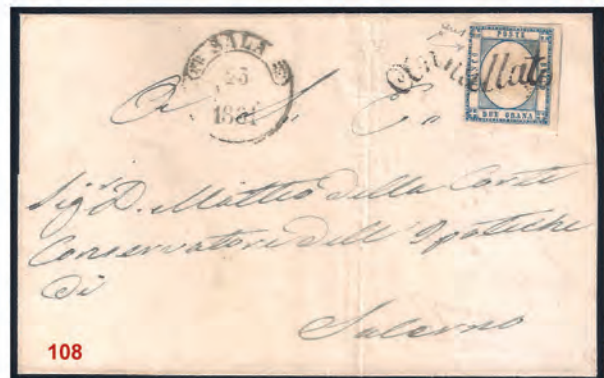 SALA
25
1861
Annullato
POSTE
FRANCO
BOLLO
DUE GRANA
A S. E.
Sig.r D. Matteo della Corte
Conservatore dell' Ipoteche
di
Salerno
108